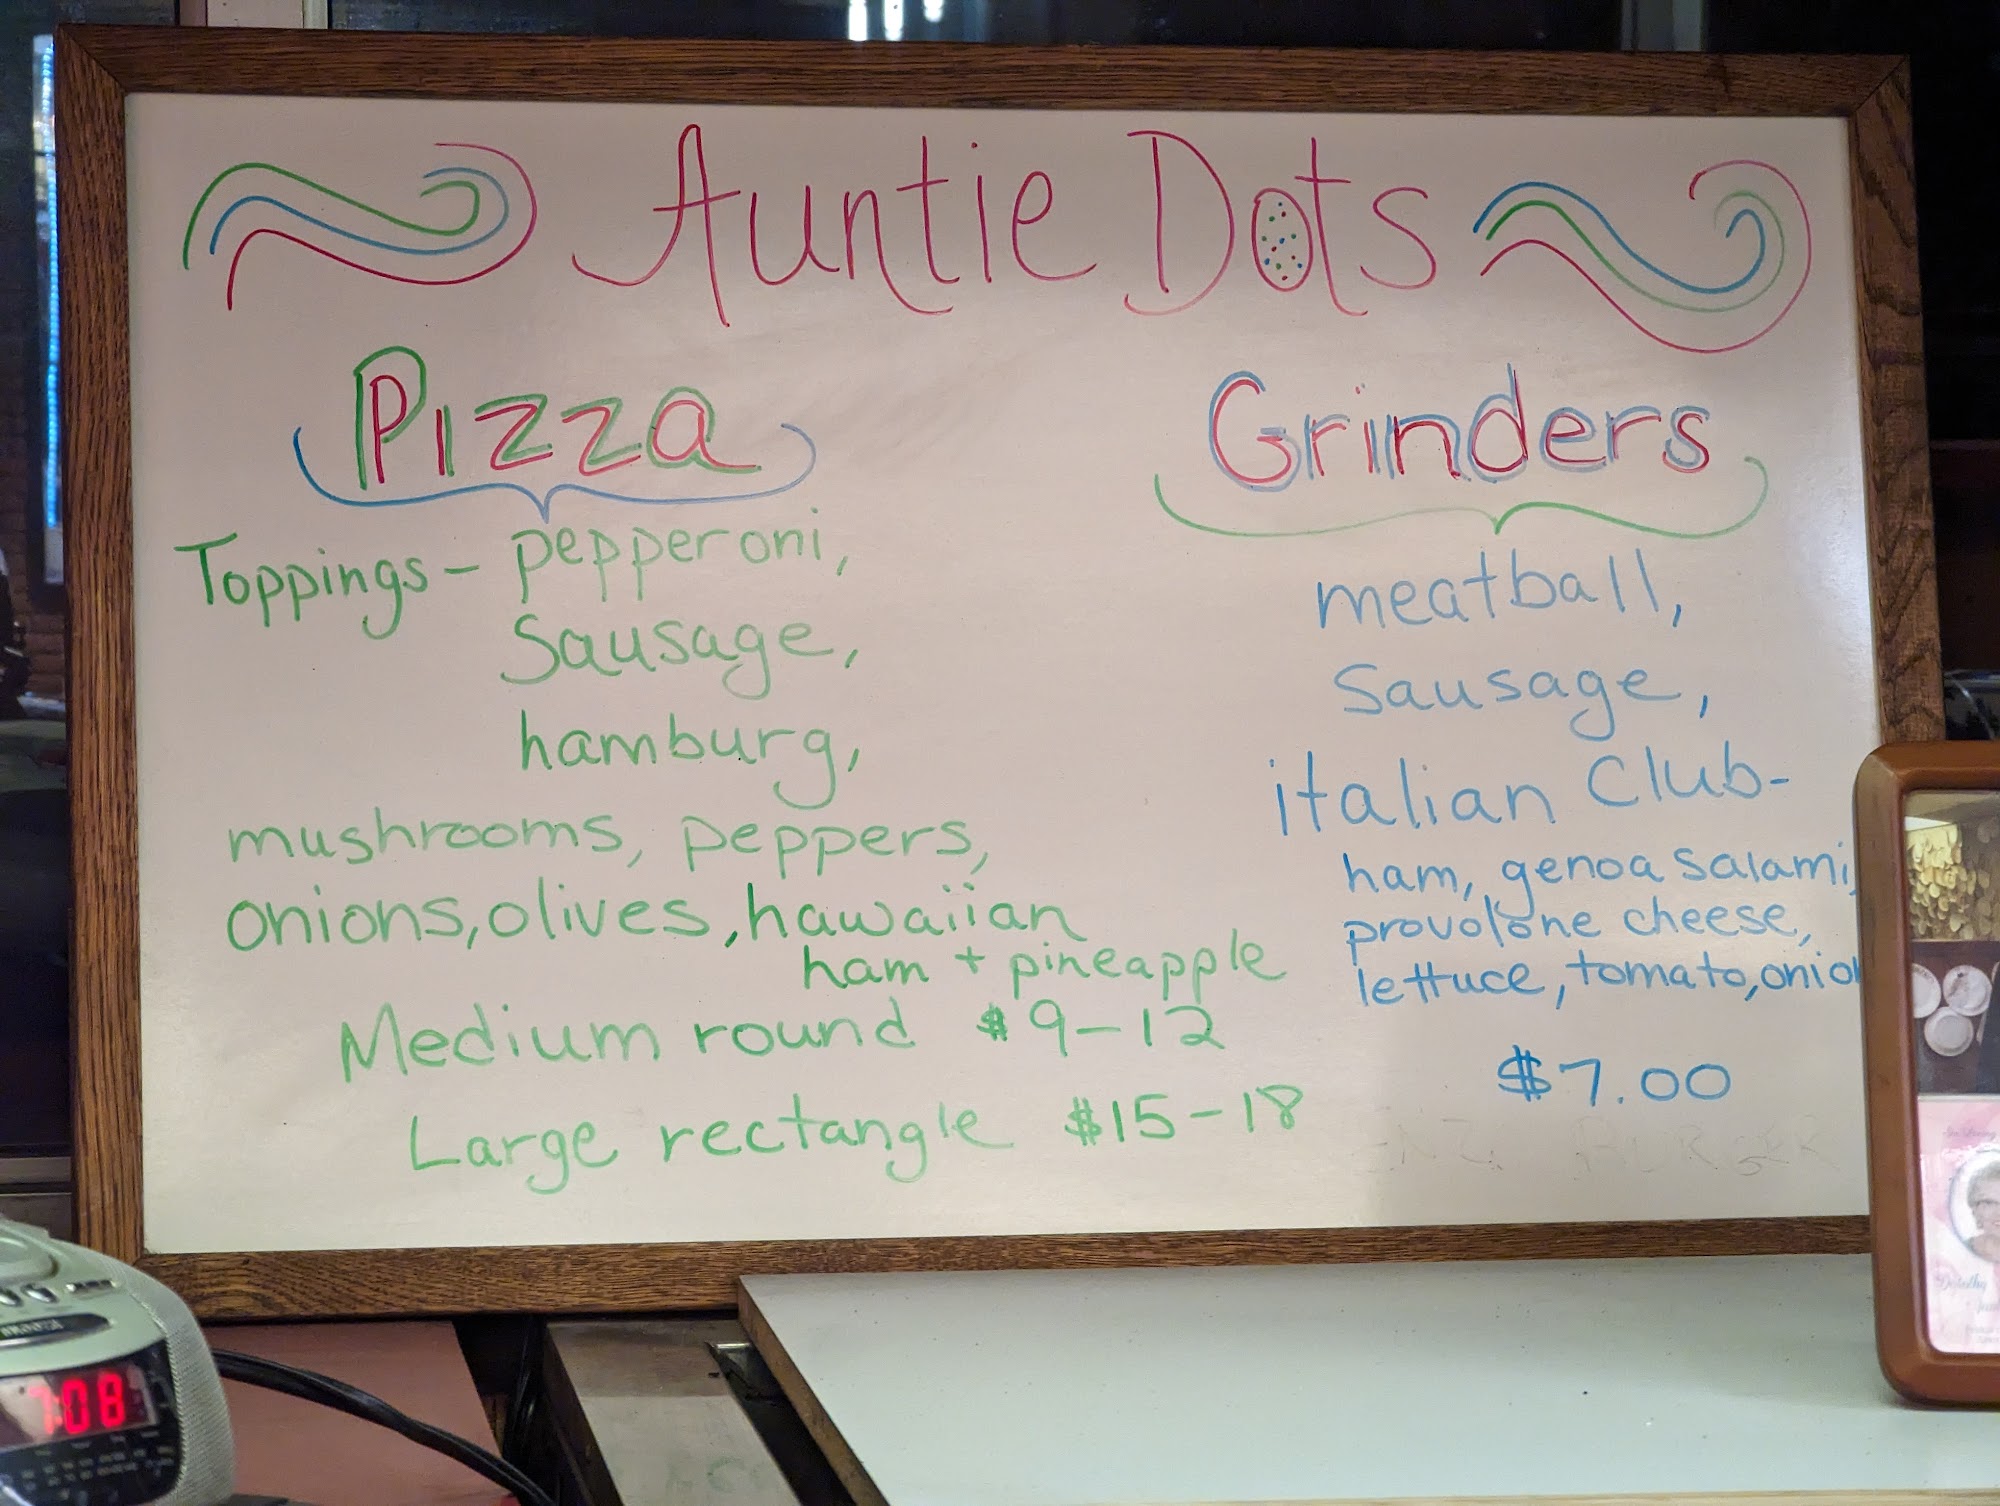 Auntie Dots
Pizza
Toppings - pepperoni,
Sausage,
hamburg,
mushrooms, peppers,
onions, olives, hawaiian
ham + pineapple
Medium round $9-12
Large rectangle $15-18
Grinders
meatball,
Sausage,
italian Club-
ham, genoa salami,
provolone cheese,
lettuce, tomato, onion
$7.00
BURGER
7:08